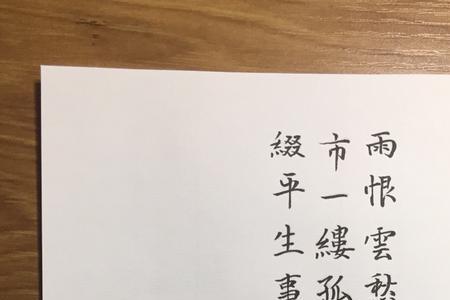 雨恨雲愁
市一縷孤
綴平生事